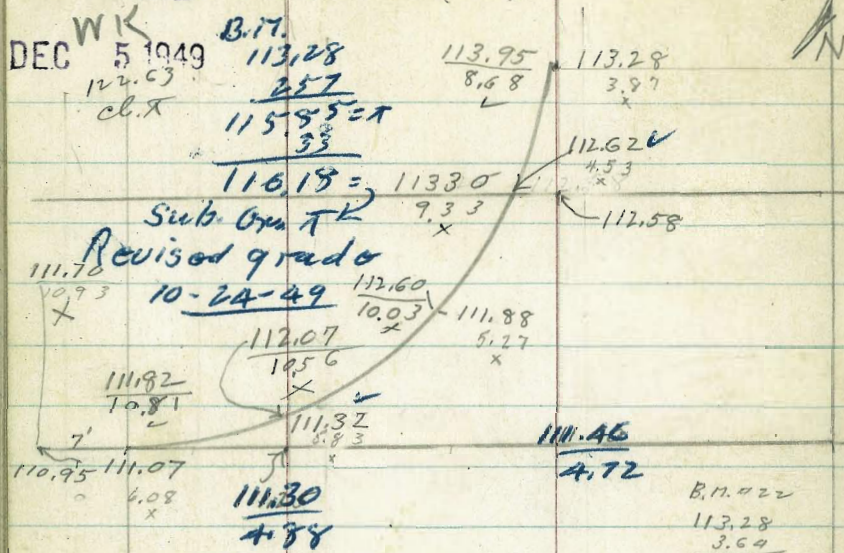 WK
DEC 5 1949
122.63
B.M.
113.28
257
115.85 = π
33
116.18 =
Sub Grn π
Revised grade
10-24-49
113.95
8.68
113.28
3.87
x
N
112.62
4.53
x
11330
9.33
x
112.58
111.70
10.93
x
112.60
10.03
x
111.88
5.27
x
112.07
10.56
x
111.82
10.81
111.32
x
111.46
4.72
7'
110.95
111.07
6.08
x
111.30
4.88
B.M. #22
113.28
3.64